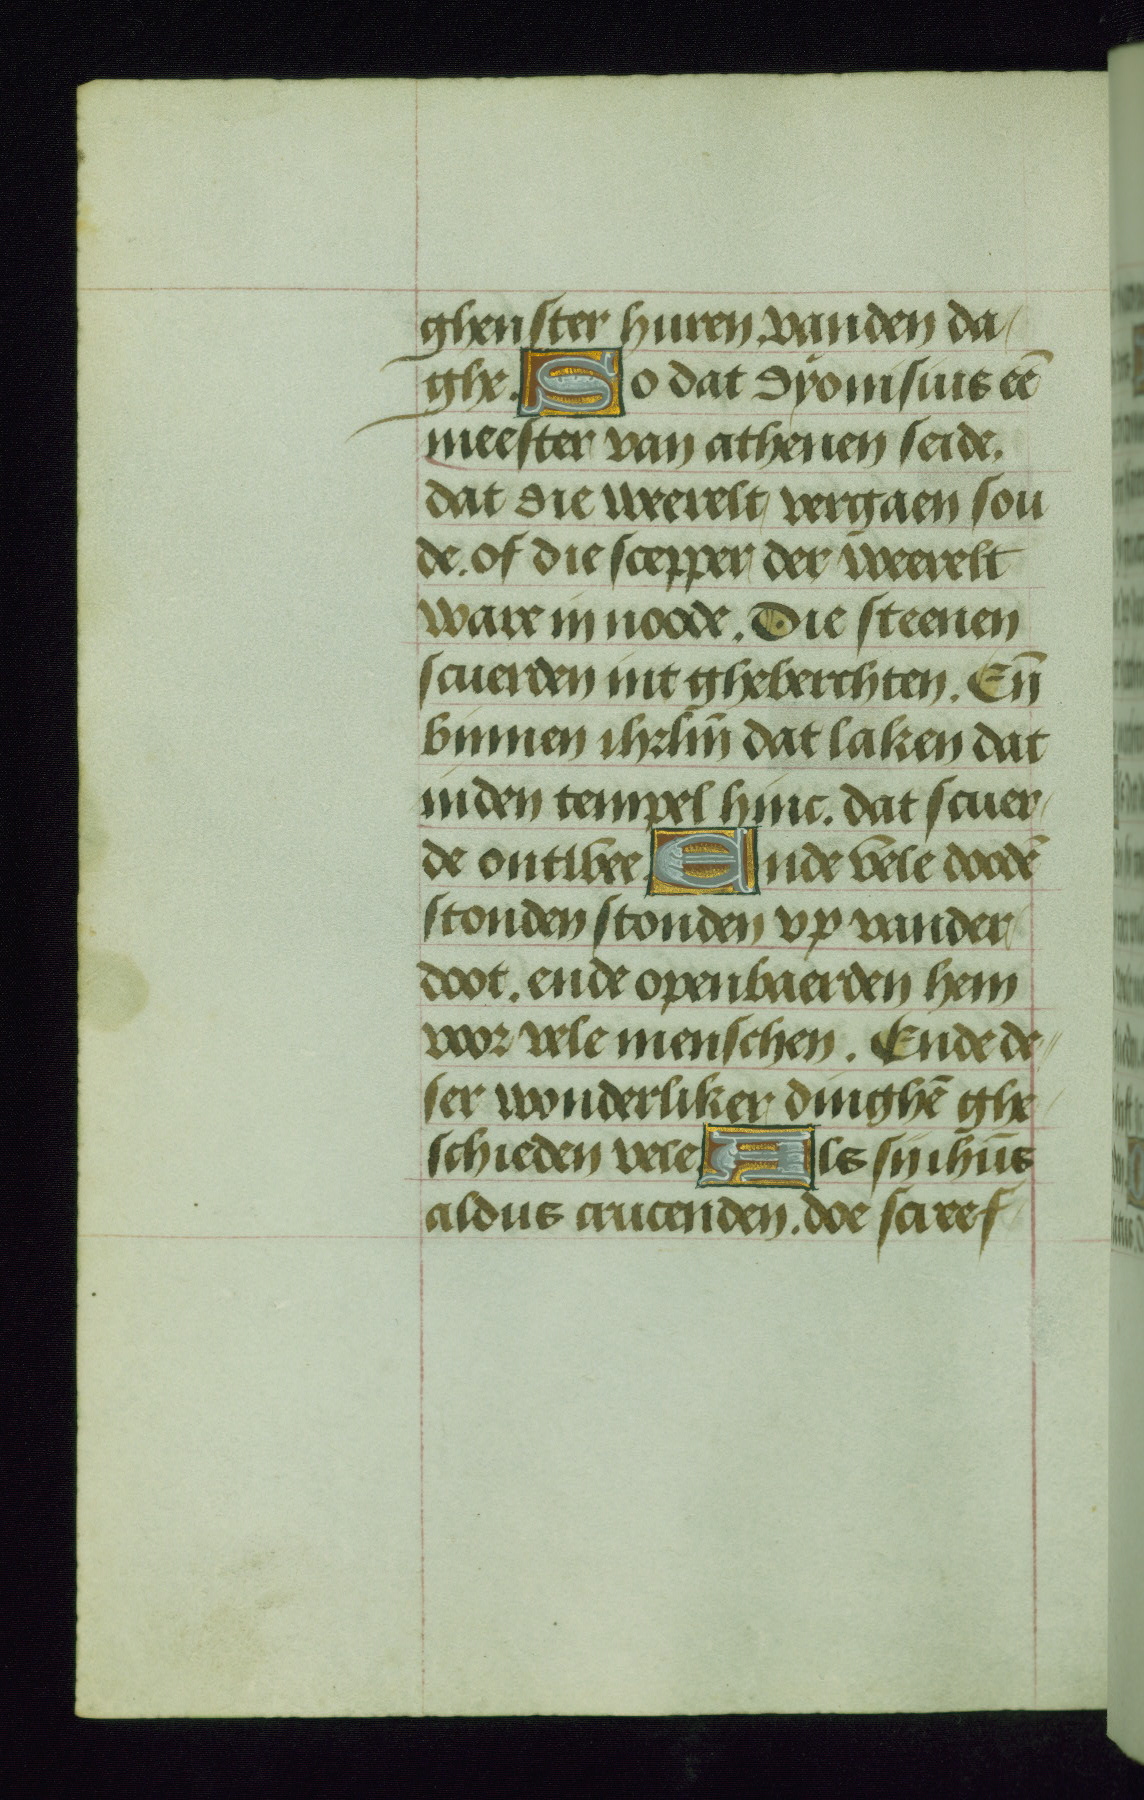 ghenster huren vanden da/
ghe. So dat dyonisius eē
meester van athenen seide.
dat die weerelt vergaen sou
de. of die scepper der weerelt
ware in noode. Die steenen
scuerden int gheberchten. Eñ
binnen ihrlm̄ dat laken dat
inden tempel hinc. dat scuer/
de ontwee. Ende vele doodē
stonden stonden vp vander
doot. ende openbaerden hem
voor vele menschen. Ende de//
ser wonderliker dinghē ghe/
schieden vele. Als sij ihūs
aldus crucenden. doe screef